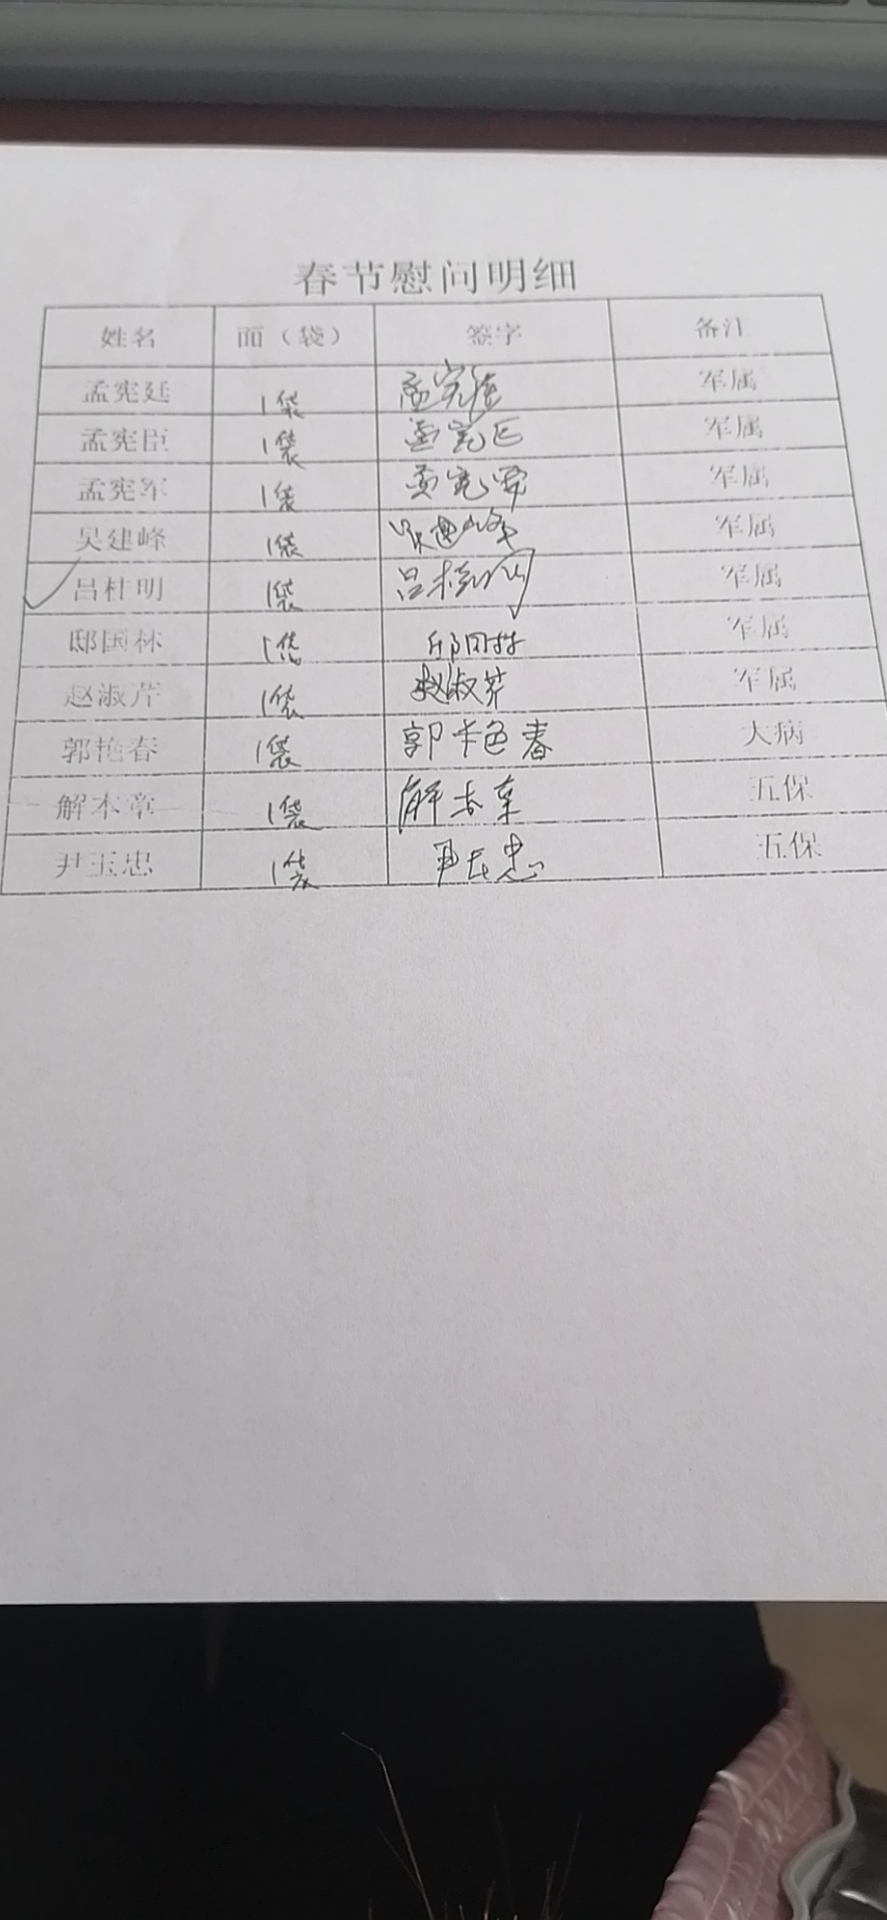 春节慰问明细
姓名 面（袋） 签字 备注
孟宪廷 1袋 孟宪廷 军属
孟宪臣 1袋 孟宪臣 军属
孟宪军 1袋 孟宪军 军属
吴建峰 1袋 吴建峰 军属
吕杜明 1袋 军属
邸国林 1袋 邸国林 军属
赵淑芹 1袋 赵淑芹 军属
郭艳春 1袋 郭艳春 大病
解本章 1袋 五保
尹玉忠 1袋 五保